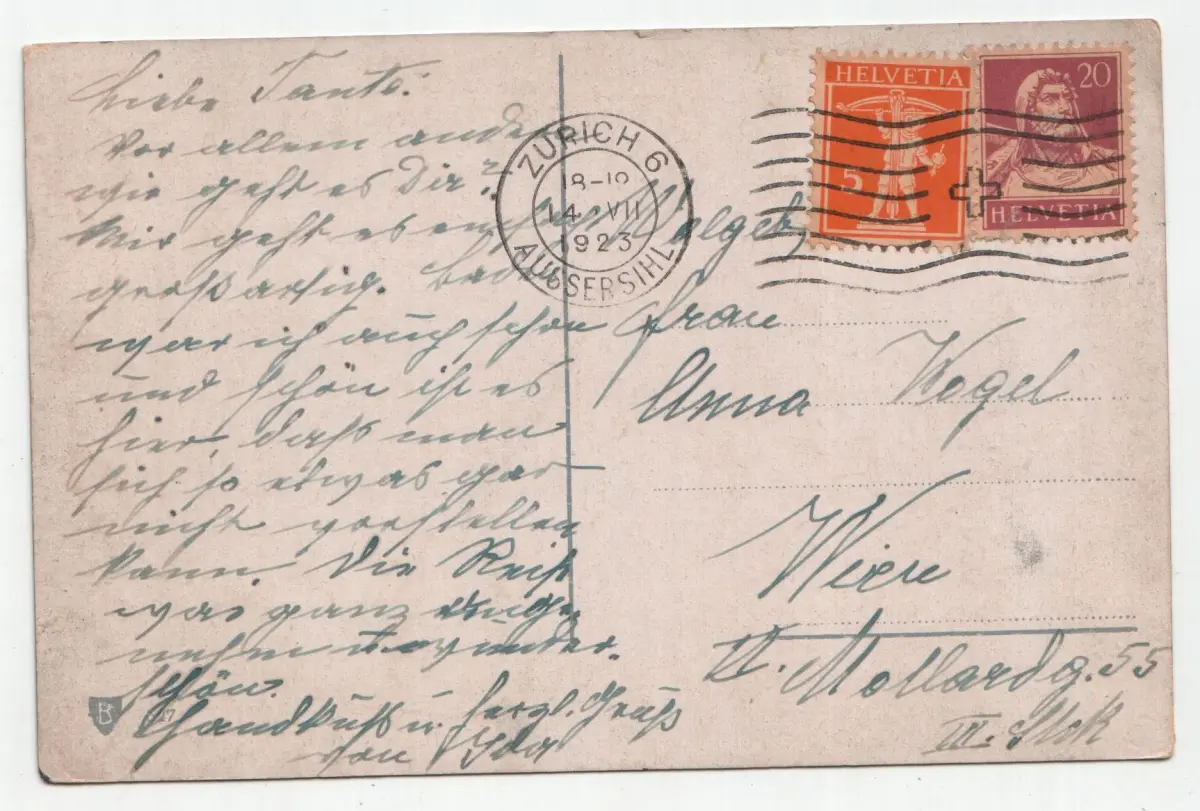 Liebe Tante!
Vor allem andern
wie geht es Dir?
Mir geht es einfach
großartig. Baden
war ich auch schon
und schön ist es
hier, daß man
sich so etwas gar
nicht vorstellen
kann. Die Reise
war ganz ange-
nehm u. wunder-
schön.
Handkuß u. herzl. Gruß
von Ida
ZÜRICH 6
18-19
14. VII
1923
AUSSERSIHL
HELVETIA
5
20
HELVETIA
Frau
Anna Vogel
Wien
VI. Mollardg. 55
III. Stck
B